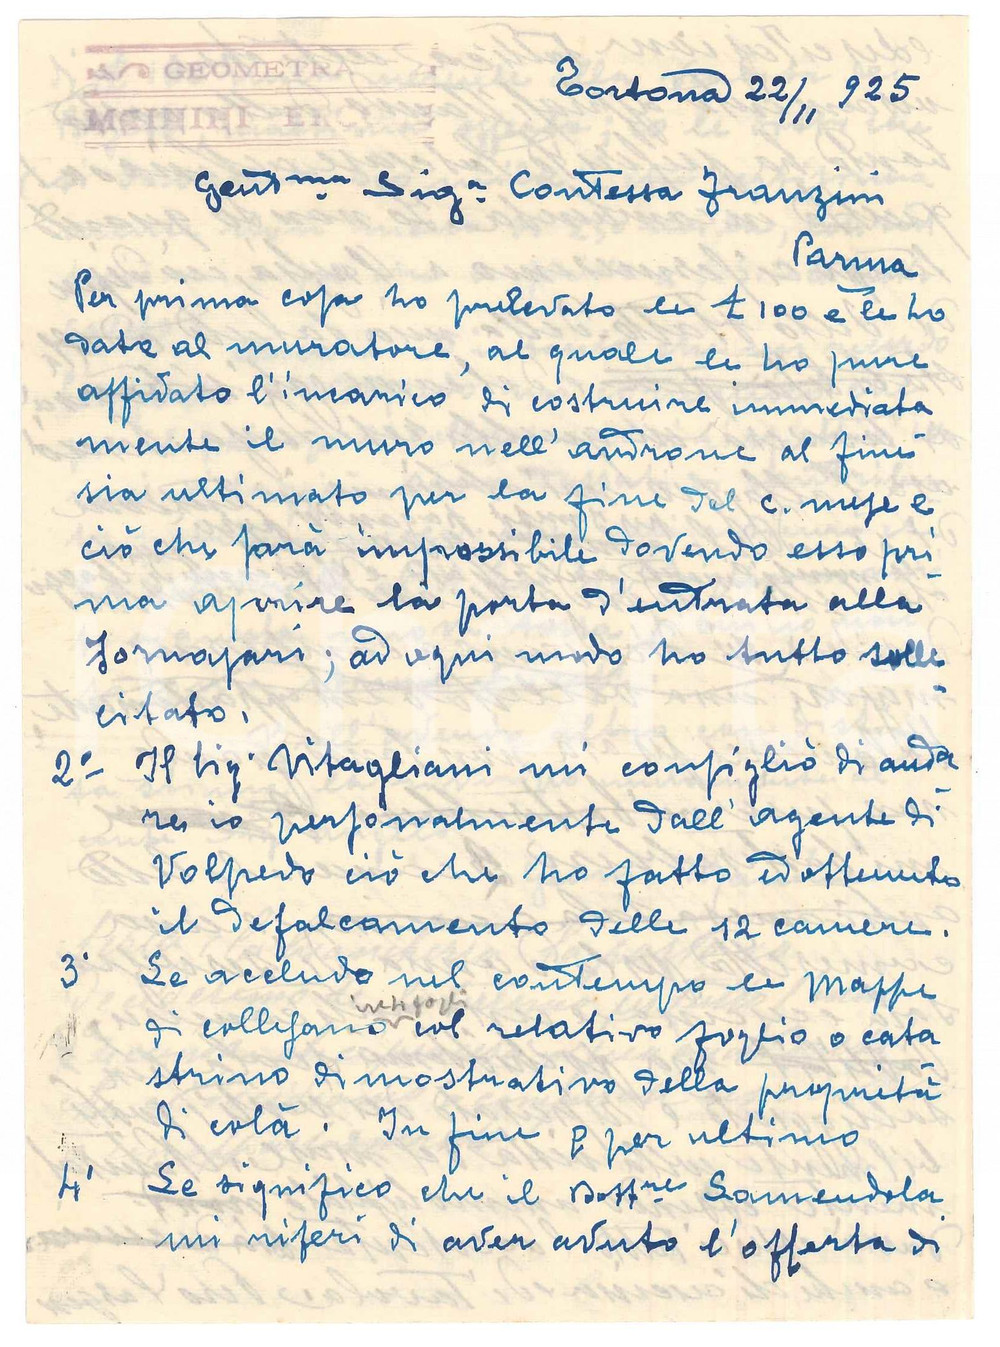 GEOMETRA
Tortona 22/11 925
Gentma Siga Contessa Franzini
Parma
Per prima cosa ho prelevato le £ 100 e le ho
date al muratore, al quale le ho pure
affidato l'incarico di costruire immediata
mente il muro nell'androne al fine
sia ultimato per la fine del c. mese e
ciò che sarà impossibile dovendo esso pri
ma aprire la porta d'entrata alla
Fornasari; ad ogni modo ho tutto solle
citato.
2° Il Sig. Vitagliani mi consigliò di anda
re io personalmente dall'agente di
Volpedo ciò che ho fatto ed ottenuto
il defalcamento delle 12 camere.
3° Le accludo nel contempo le Mappe
di collegano col relativo foglio o cata
strino dimostrativo della proprietà
di colà. In fine e per ultimo
4° Le significo che il Dottre Samendola
mi riferì di aver avuto l'offerta di